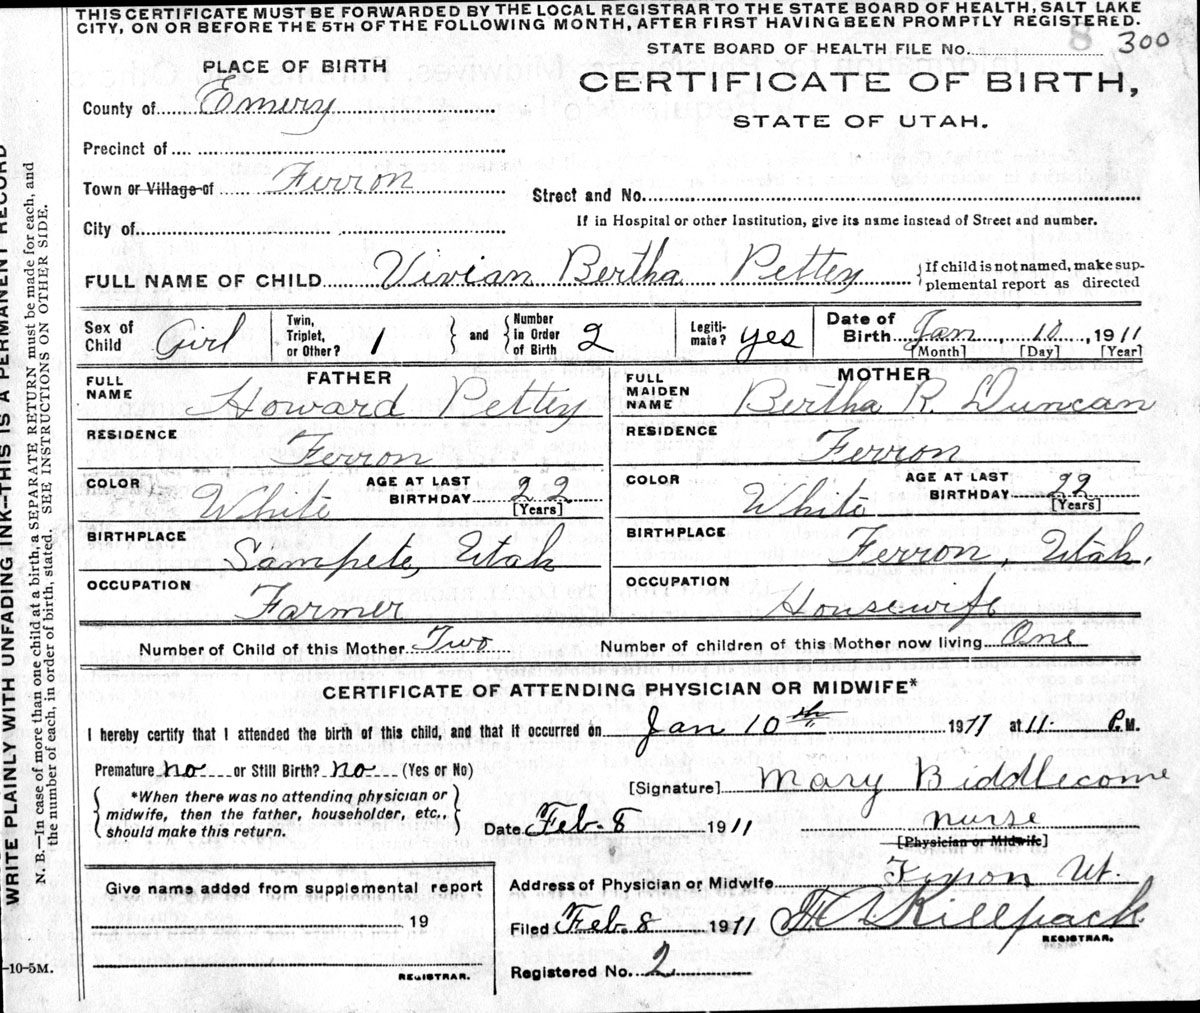 THIS CERTIFICATE MUST BE FORWARDED BY THE LOCAL REGISTRAR TO THE STATE BOARD OF HEALTH, SALT LAKE
CITY, ON OR BEFORE THE 5TH OF THE FOLLOWING MONTH, AFTER FIRST HAVING BEEN PROMPTLY REGISTERED.
STATE BOARD OF HEALTH FILE No. 8 300
PLACE OF BIRTH
CERTIFICATE OF BIRTH,
STATE OF UTAH.
County of Emery
Precinct of
Town or Village of Ferron
Street and No.
City of
If in Hospital or other Institution, give its name instead of Street and number.
FULL NAME OF CHILD Vivian Bertha Pettey
{If child is not named, make sup-
plemental report as directed
Sex of Child Girl
Twin, Triplet, or Other? 1 } and { Number in Order of Birth 2
Legiti-mate? yes
Date of Birth Jan, 10, 1911
[Month] [Day] [Year]
FATHER
FULL NAME Howard Pettey
RESIDENCE Ferron
COLOR White AGE AT LAST BIRTHDAY 22 [Years]
BIRTHPLACE Sampete, Utah
OCCUPATION Farmer
MOTHER
FULL MAIDEN NAME Bertha R. Duncan
RESIDENCE Ferron
COLOR White AGE AT LAST BIRTHDAY 22 [Years]
BIRTHPLACE Ferron, Utah,
OCCUPATION Housewife
Number of Child of this Mother Two
Number of children of this Mother now living One
CERTIFICATE OF ATTENDING PHYSICIAN OR MIDWIFE*
I hereby certify that I attended the birth of this child, and that it occurred on Jan 10th 1911 at 11. P.M.
Premature no or Still Birth? no (Yes or No)
{ *When there was no attending physician or
midwife, then the father, householder, etc.,
should make this return. }
[Signature] Mary Biddlecome
Date Feb. 8 1911
nurse
[Physician or Midwife]
Address of Physician or Midwife Ferron Ut.
Filed Feb. 8 1911 Killpack
REGISTRAR.
Registered No. 2
Give name added from supplemental report
19
REGISTRAR.
WRITE PLAINLY WITH UNFADING INK--THIS IS A PERMANENT RECORD
N. B.—In case of more than one child at a birth, a SEPARATE RETURN must be made for each, and
the number of each, in order of birth, stated. SEE INSTRUCTIONS ON OTHER SIDE.
-10-5M.